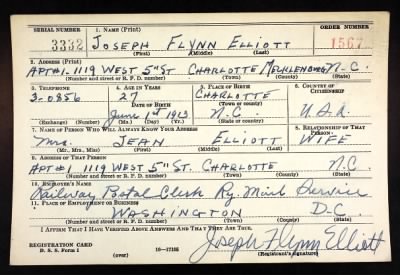 SERIAL NUMBER 1. NAME (Print) ORDER NUMBER
3332 JOSEPH FLYNN ELLIOTT 1567
(First) (Middle) (Last)
2. ADDRESS (Print)
APT#1-1119 WEST 5TH ST CHARLOTTE MECKLENBURG N-C.
(Number and street or R. F. D. number) (Town) (County) (State)
3. TELEPHONE 4. AGE IN YEARS 5. PLACE OF BIRTH 6. COUNTRY OF CITIZENSHIP
3-0856 27 CHARLOTTE
DATE OF BIRTH (Town or county)
June 1st 1913 N.C. U.S.A.
(Exchange) (Number) (Mo.) (Day) (Yr.) (State or country)
7. NAME OF PERSON WHO WILL ALWAYS KNOW YOUR ADDRESS 8. RELATIONSHIP OF THAT PERSON
Mrs. JEAN ELLIOTT WIFE
(Mr., Mrs., Miss) (First) (Middle) (Last)
9. ADDRESS OF THAT PERSON
APT#1 1119 WEST 5TH ST. CHARLOTTE N.C.
(Number and street or R. F. D. number) (Town) (County) (State)
10. EMPLOYER'S NAME
Railway Postal Clerk Ry. Mail Service
11. PLACE OF EMPLOYMENT OR BUSINESS
WASHINGTON D-C.
(Number and street or R. F. D. number) (Town) (County) (State)
I AFFIRM THAT I HAVE VERIFIED ABOVE ANSWERS AND THAT THEY ARE TRUE.
REGISTRATION CARD
D. S. S. Form 1 (over) 16-17105 Joseph Flynn Elliott
(Registrant's signature)